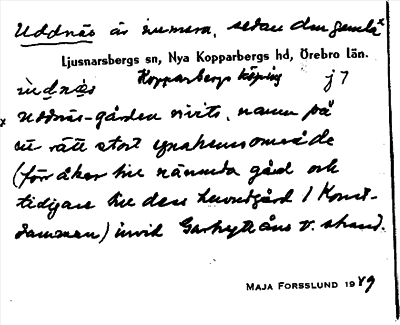 Uddnäs är numera, sedan den gamla
Ljusnarsbergs sn, Nya Kopparbergs hd, Örebro län.
Kopparbergs köping j 7
Uddnäs-gården rivits, namn på
ett rätt stort egnahemsområde
(förr åker till nämnda gård och
tidigare till dess huvudgård / Konst-
dammen) invid Garhytteåns v. strand.
MAJA FORSSLUND 1949